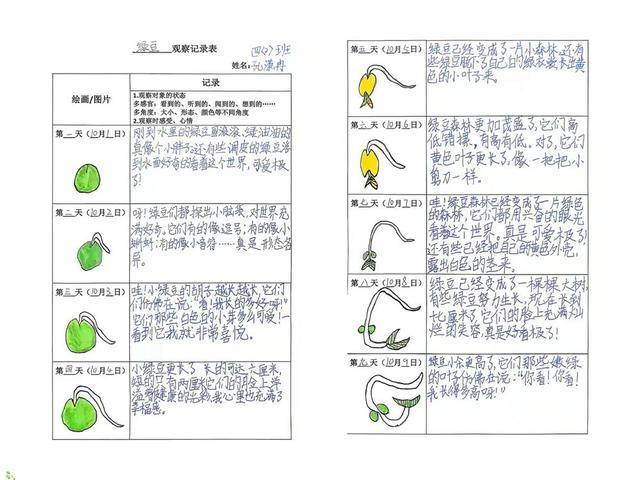 绿豆 观察记录表
四(7)班
姓名:孔潇冉
绘画/图片
记录
1.观察对象的状态
多感官:看到的、听到的、闻到的、想到的……
多角度:大小、形态、颜色等不同角度
2.观察时感受、心情
第一天(10月1日)
刚到水里的绿豆圆滚滚、绿油油的
真像个小胖子,还有些调皮的绿豆浮
到水面好奇的看着这个世界,可爱极
了!
第二天(10月2日)
呀!绿豆们都探出小脑袋,对世界充
满好奇。它们有的像逗号;有的像小
蝌蚪;有的像小音符……真是形态各
异。
第三天(10月3日)
哇!小绿豆的胡子越长越长,它们
们仿佛在说:“看!我长的多好呀!”
它们那些白色的小芽多么可爱!一
看到它我就非常喜悦。
第四天(10月4日)
小绿豆更长了,长的可达六厘米,
短的只有两厘米它们的脸上洋
溢着健康的光彩,我心里也充满了
幸福感。
第五天(10月5日)
绿豆已经变成了一片小森林,还有
些绿豆脱下了自己的绿衣裳长出黄
色的小叶子来。
第六天(10月6日)
绿豆森林更加茂盛了,它们高
低错摞,有高有低。对了,它们
黄色叶子更长了,像一把把小
剪刀一样。
第七天(10月7日)
哇!绿豆森林已经变成了一片绿色
的森林,它们都用兴奋的眼光
看着这个世界。真是可爱极了!
还有些已经把自己的黄色外壳,
露出白色的茎来。
第八天(10月8日)
绿豆已经变成了一棵棵大树
有些绿豆努力生长,现在长到
七厘米了它们的脸上充满灿
烂的笑容,真是好看极了!
第九天(10月9日)
绿豆小东更高了,它们那些嫩绿
的叶子仿佛在说:“你看!你看!
我长得多高呀!”